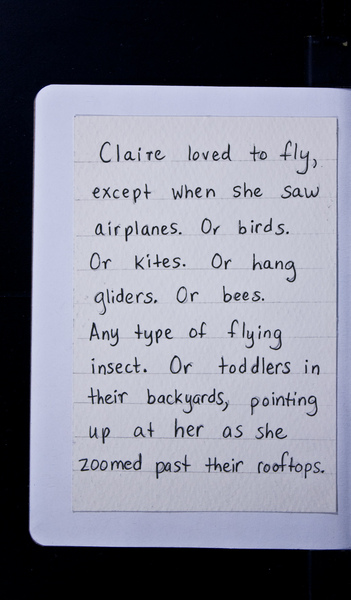 Claire loved to fly,
except when she saw
airplanes. Or birds.
Or kites. Or hang
gliders. Or bees.
Any type of flying
insect. Or toddlers in
their backyards, pointing
up at her as she
zoomed past their rooftops.